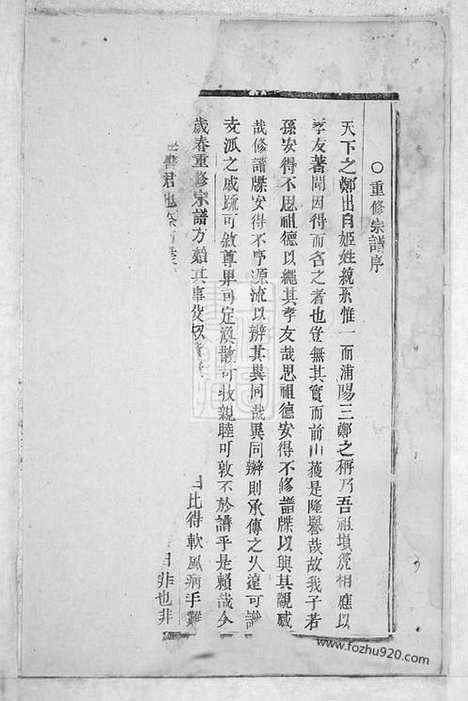 ○重修宗譜序
天下之鄭出自姬姓統系惟一而浦陽三鄭之稱乃吾祖塤箎相應以
孝友著聞因得而名之者也豈無其實而前人獲是隆譽哉故我子若
孫安得不思祖德以繩其孝友哉思祖德安得不修譜牒以興其觀感
哉修譜牒安得不序源流以辨其異同哉異同辦則承傳之久遠可識
支派之戚疏可敘尊卑可定渙散可收親睦可敦不於譜乎是賴哉今
歲春重修宗譜方始其事
比得軟風病手難
君也
非也非
www.fozhu920.com